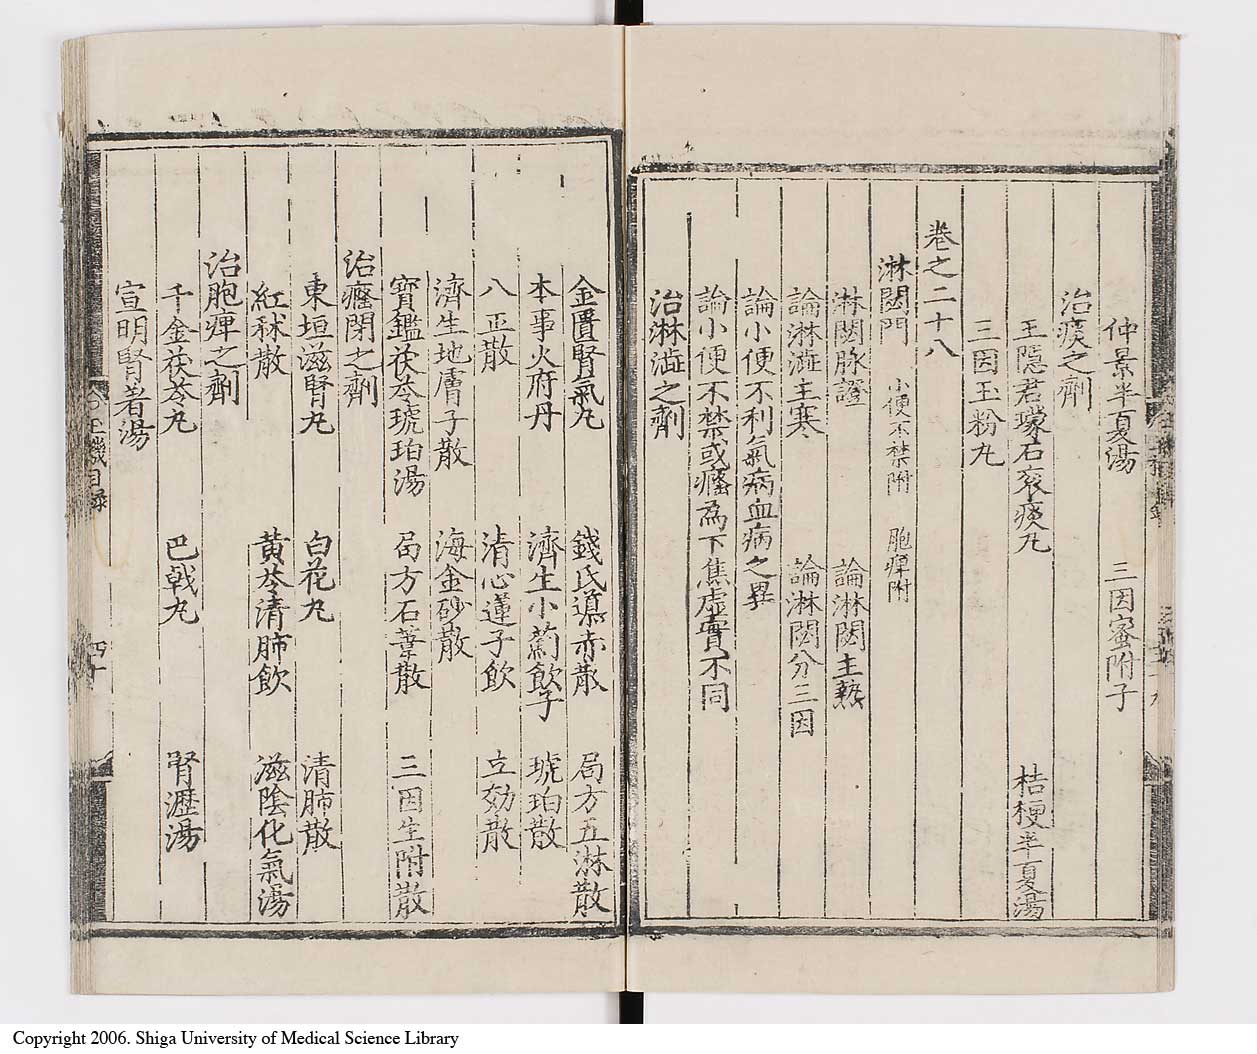 仲景半夏湯　三因蜜附子
治痰之劑
王隱君礞石衮痰丸　桔梗半夏湯
三因玉粉丸
卷之二十八
淋閟門　小便不禁附　胞痺附
淋閟脉證　論淋閟主熱
論淋澁主寒　論淋閟分三因
論小便不利氣病血病之異
論小便不禁或癃為下焦虛實不同
治淋澁之劑
金匱腎氣丸　錢氏導赤散　局方五淋散
本事火府丹　濟生小薊飲子　琥珀散
八正散　清心蓮子飲　立効散
濟生地膚子散　海金砂散
寳鑑茯苓琥珀湯　局方石葦散　三因生附散
治癃閉之劑
東垣滋腎丸　白花丸　清肺散
紅秫散　黃芩清肺飲　滋陰化氣湯
治胞痺之劑
千金茯苓丸　巴戟丸　腎瀝湯
宣明腎着湯
玉機目錄
四十
Copyright 2006. Shiga University of Medical Science Library